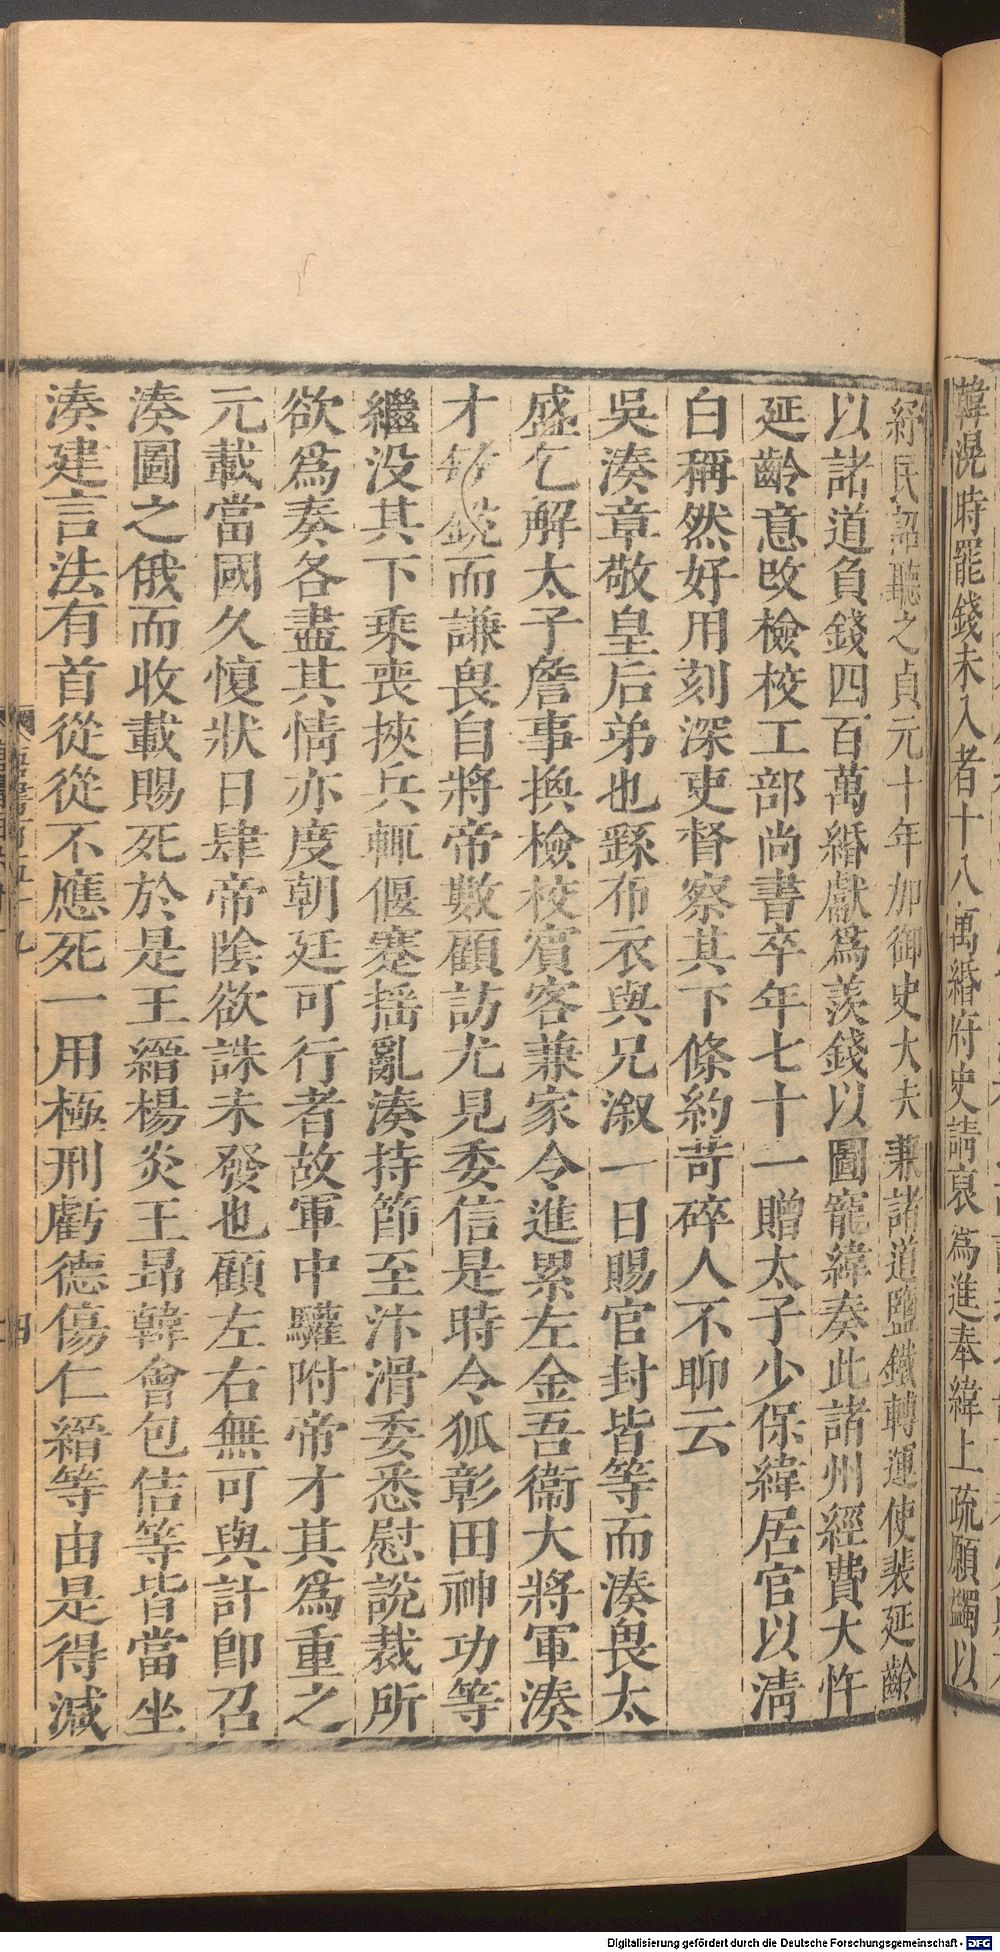 韓滉時罷錢未入者十八萬緡府史請裒為進奉緯上疏願蠲以
紓民詔聽之貞元十年加御史大夫兼諸道鹽鐵轉運使裴延齡
以諸道負錢四百萬緡獻爲羨錢以圖寵緯奏此諸州經費大忤
延齡意改檢校工部尚書卒年七十一贈太子少保緯居官以清
白稱然好用刻深吏督察其下條約苛碎人不聊云
吳湊章敬皇后弟也繇布衣與兄溆一日賜官封皆等而湊畏太
盛乞解太子詹事換檢校賓客兼家令進累左金吾衞大將軍湊
才銳而謙畏自將帝數顧訪尤見委信是時令狐彰田神功等
繼没其下乘喪挾兵輒偃蹇摇亂湊持節至汴滑委悉慰説裁所
欲爲奏各盡其情亦度朝廷可行者故軍中驩附帝才其爲重之
元載當國久愎狀日肆帝陰欲誅未發也顧左右無可與計卽召
湊圖之俄而收載賜死於是王縉楊炎王昂韓會包佶等皆當坐
湊建言法有首從從不應死一用極刑虧德傷仁縉等由是得減
四
Digitalisierung gefördert durch die Deutsche Forschungsgemeinschaft - DFG